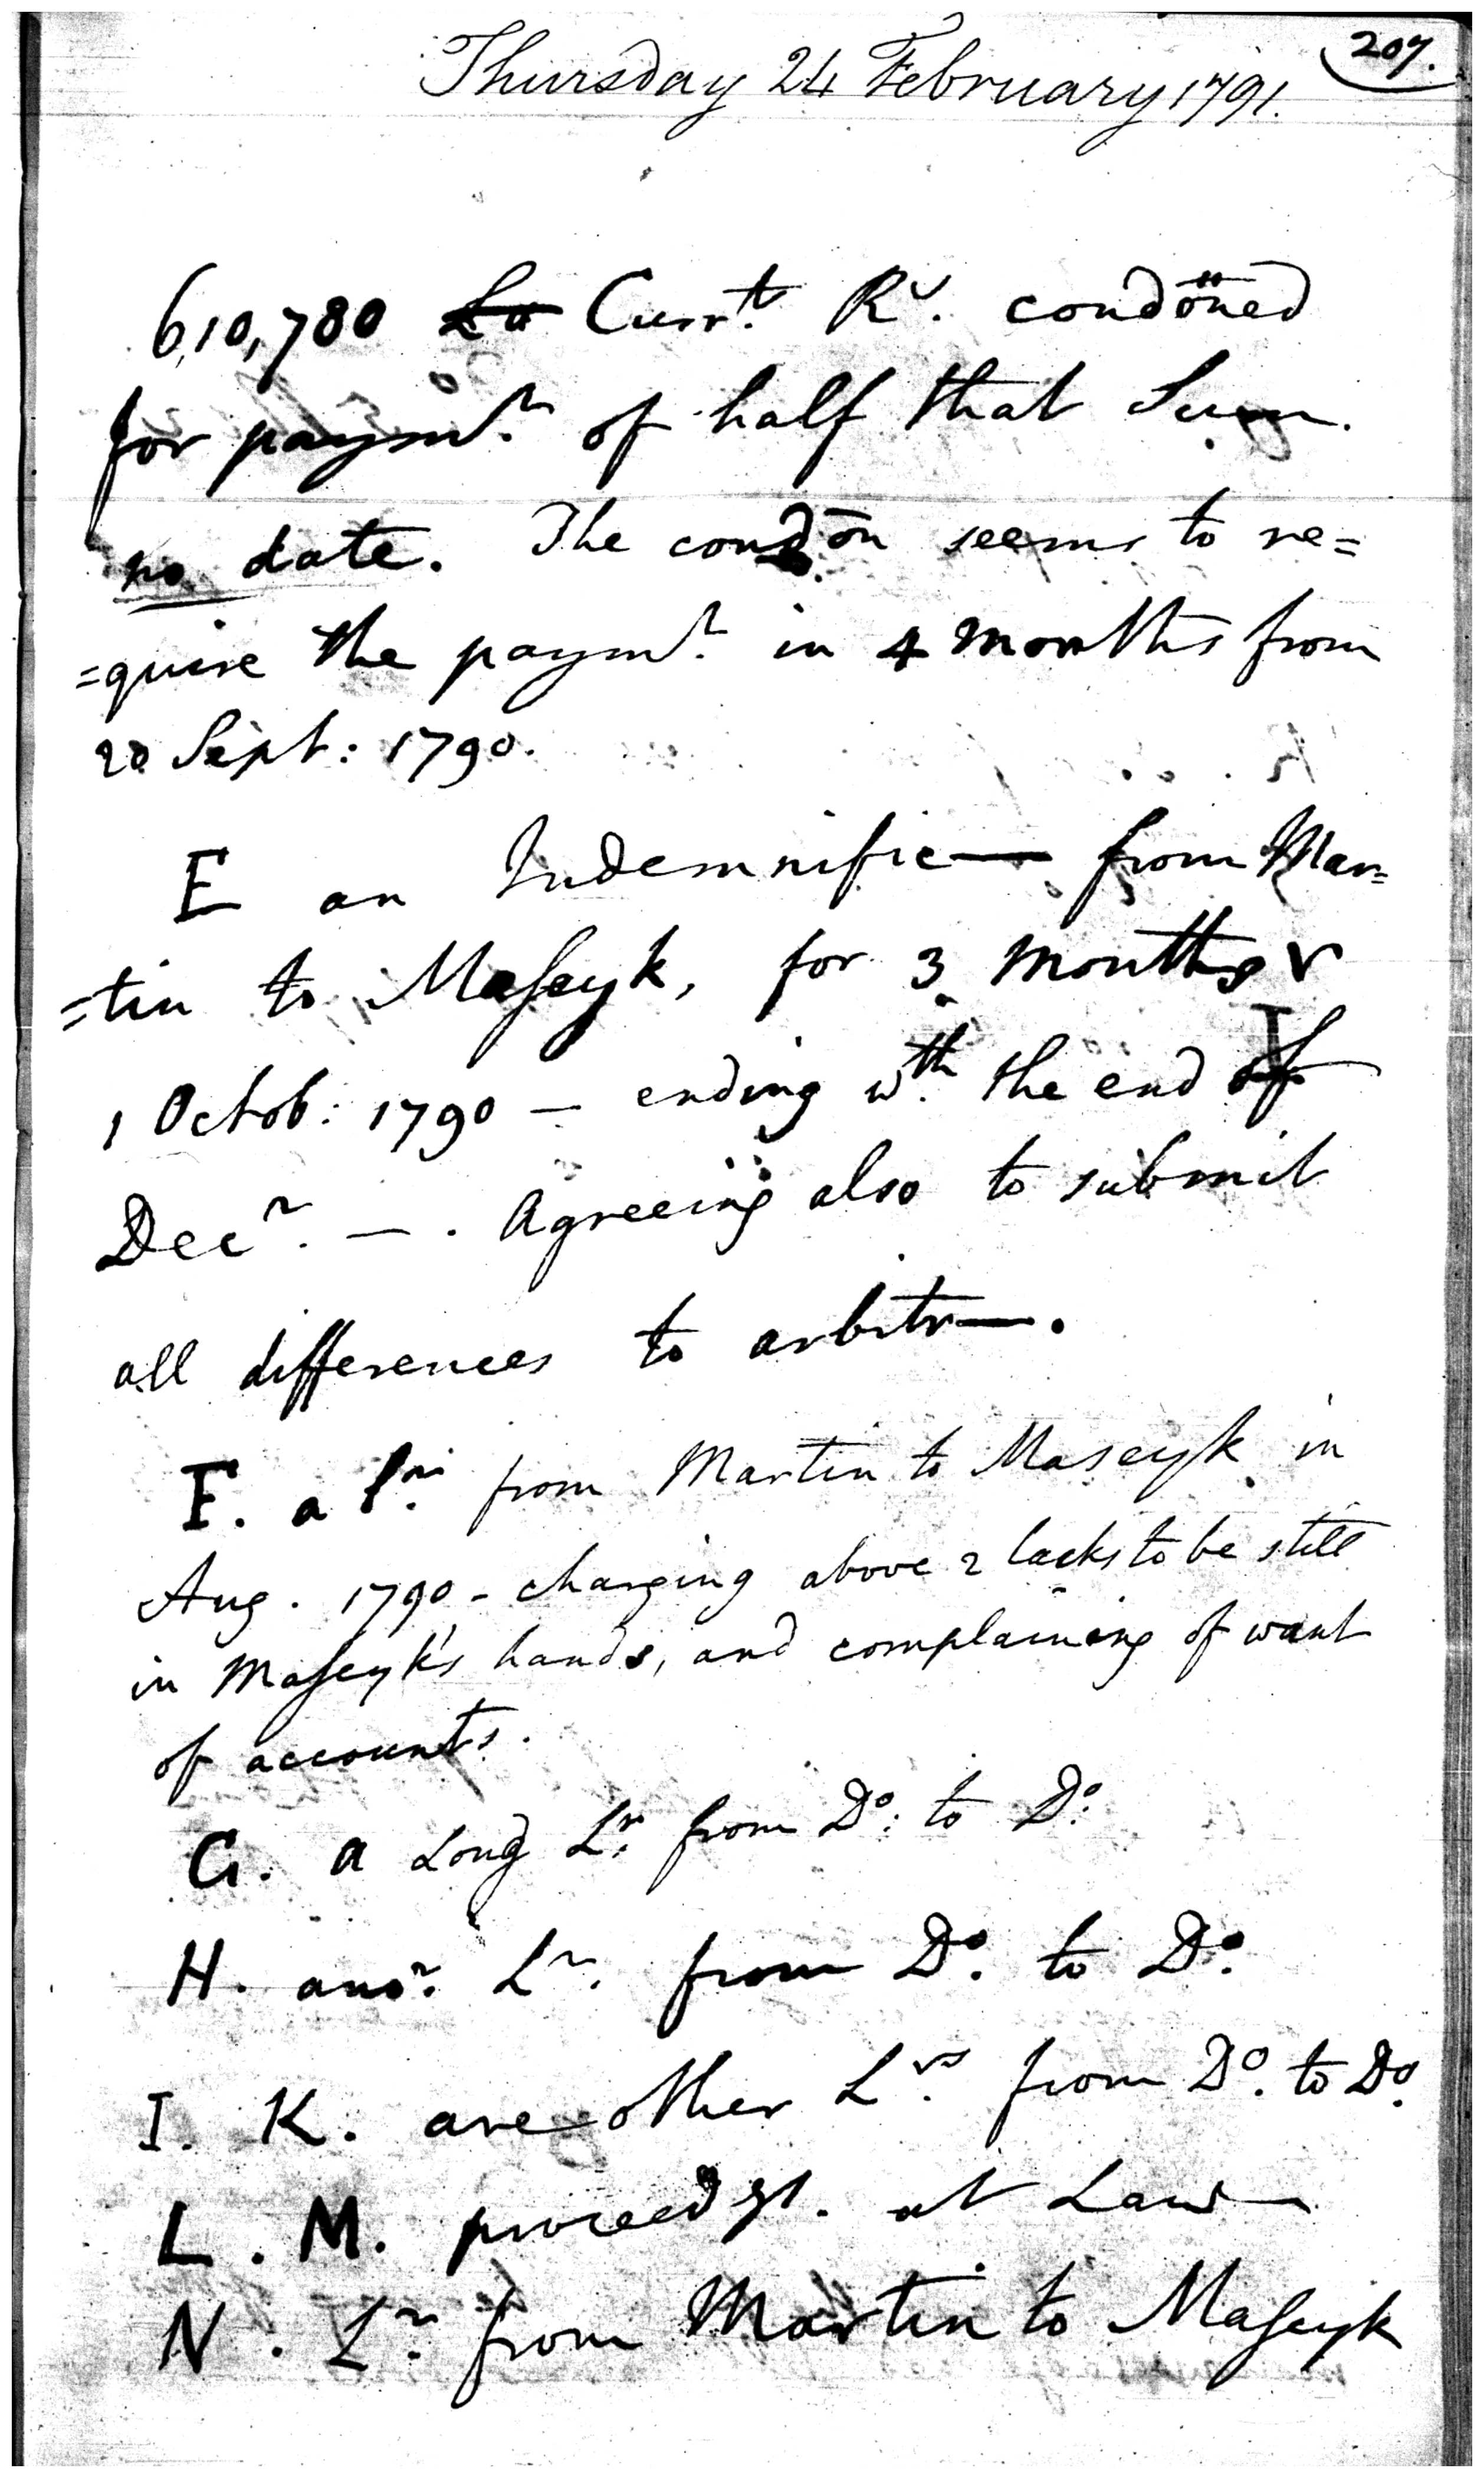 207.
Thursday 24 February 1791.
6,10,780 Curr.t R.s condōned
for paym.t of half that Sum.
no date. The condōn seems to re=
=quire the paym.t in 4 months from
20 Sept: 1790.
E an Indemnific— from Mar=
=tin to Maseyk, for 3 months
1 Octob: 1790 — ending w.th the end of
Dec.r — . Agreeing also to submit
all differences to arbitr—.
F. a L.r from Martin to Maseyk in
Aug. 1790 - charging above 2 lacks to be still
in Maseyk's hands, and complaining of want
of accounts.
G. a Long L.r from D.o to D.o
H. ano.r L.r from D.o to D.o
I. K. are other L.rs from D.o to D.o
L. M. proceedgs. at Law
N. L.r from Martin to Maseyk